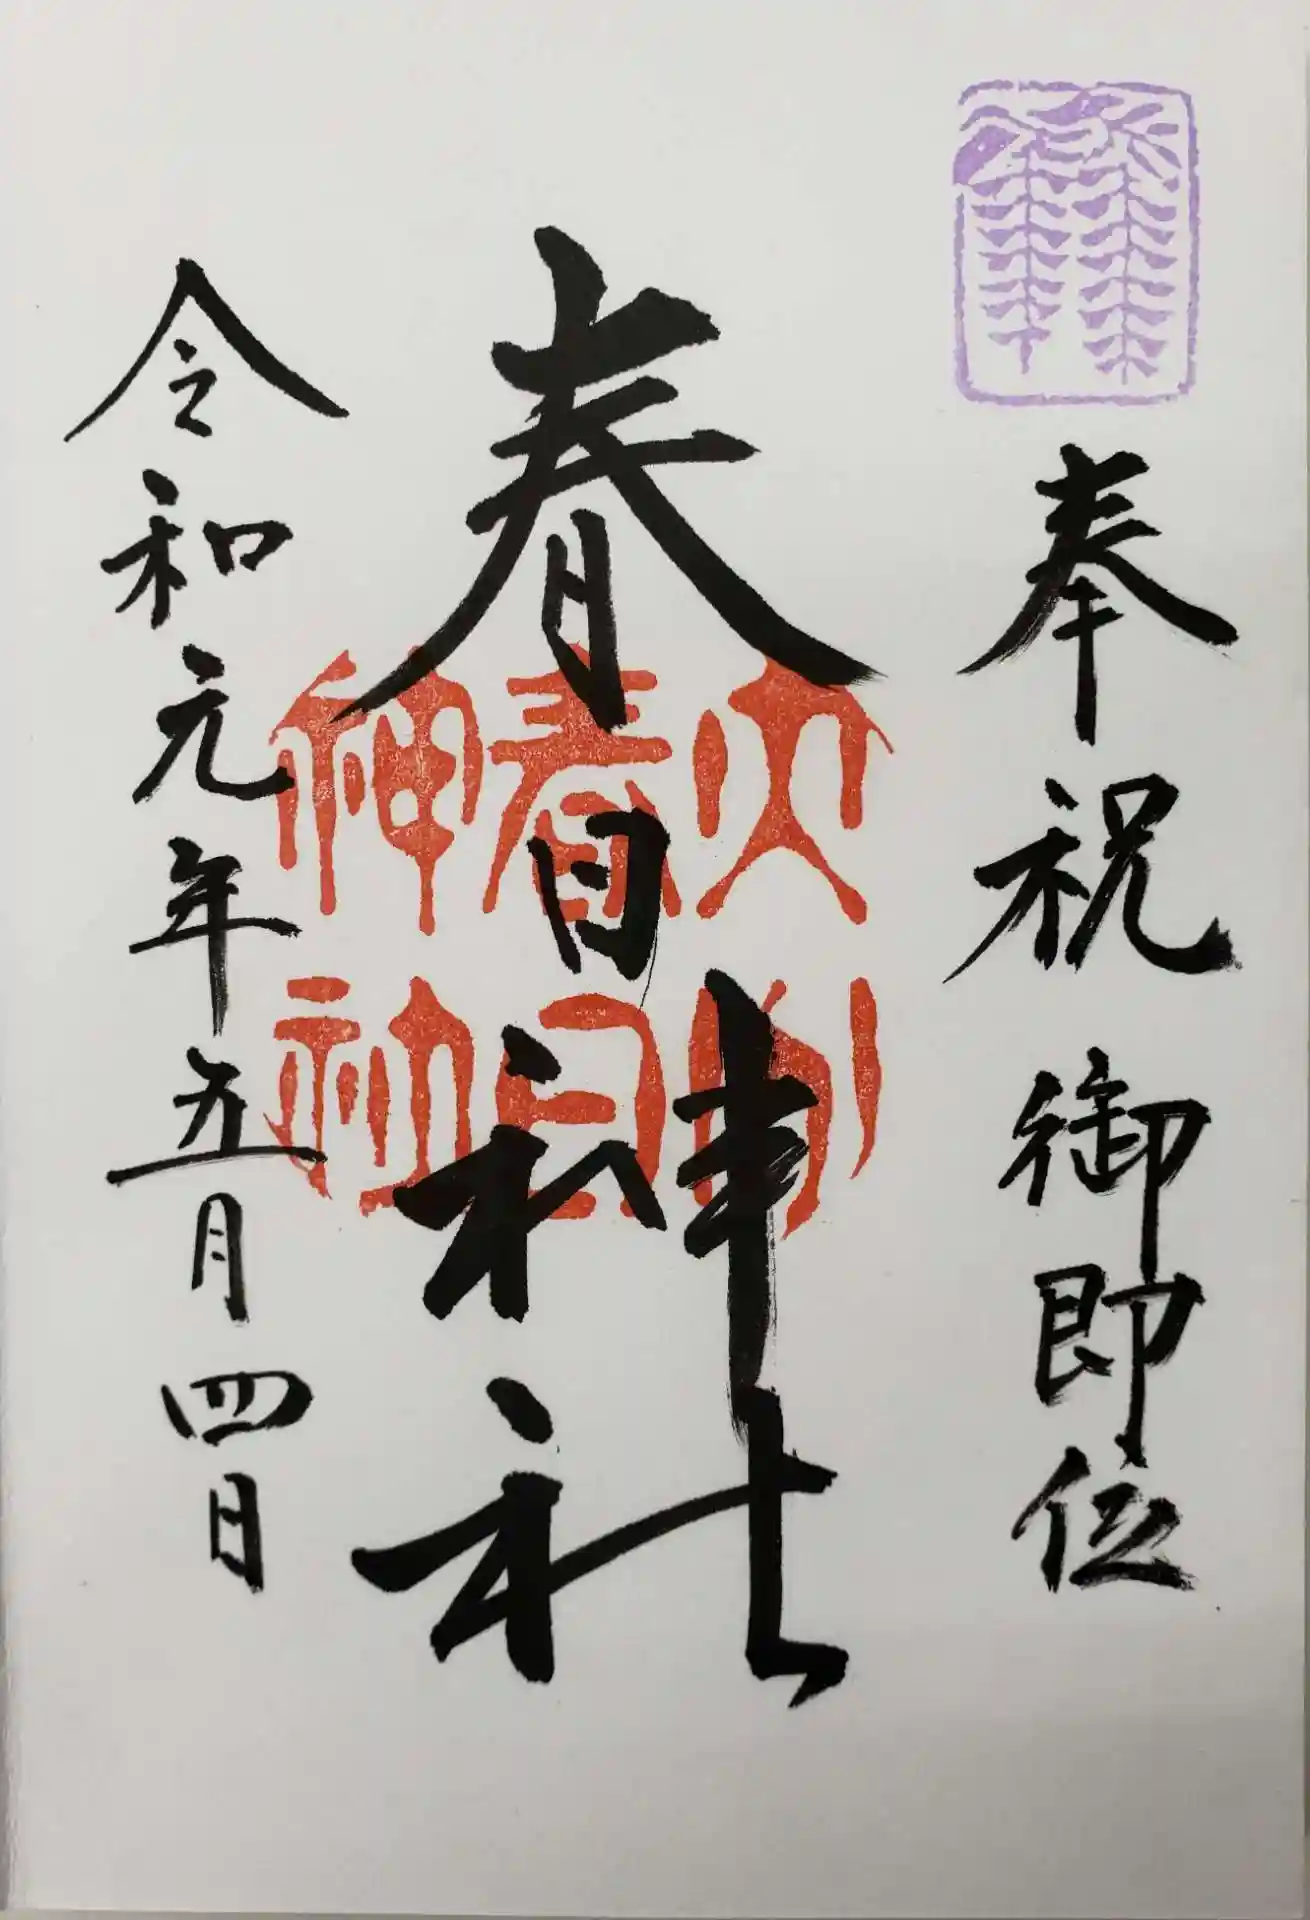 奉祝 御即位
春日神社
大分
春日
神社
令和元年五月四日